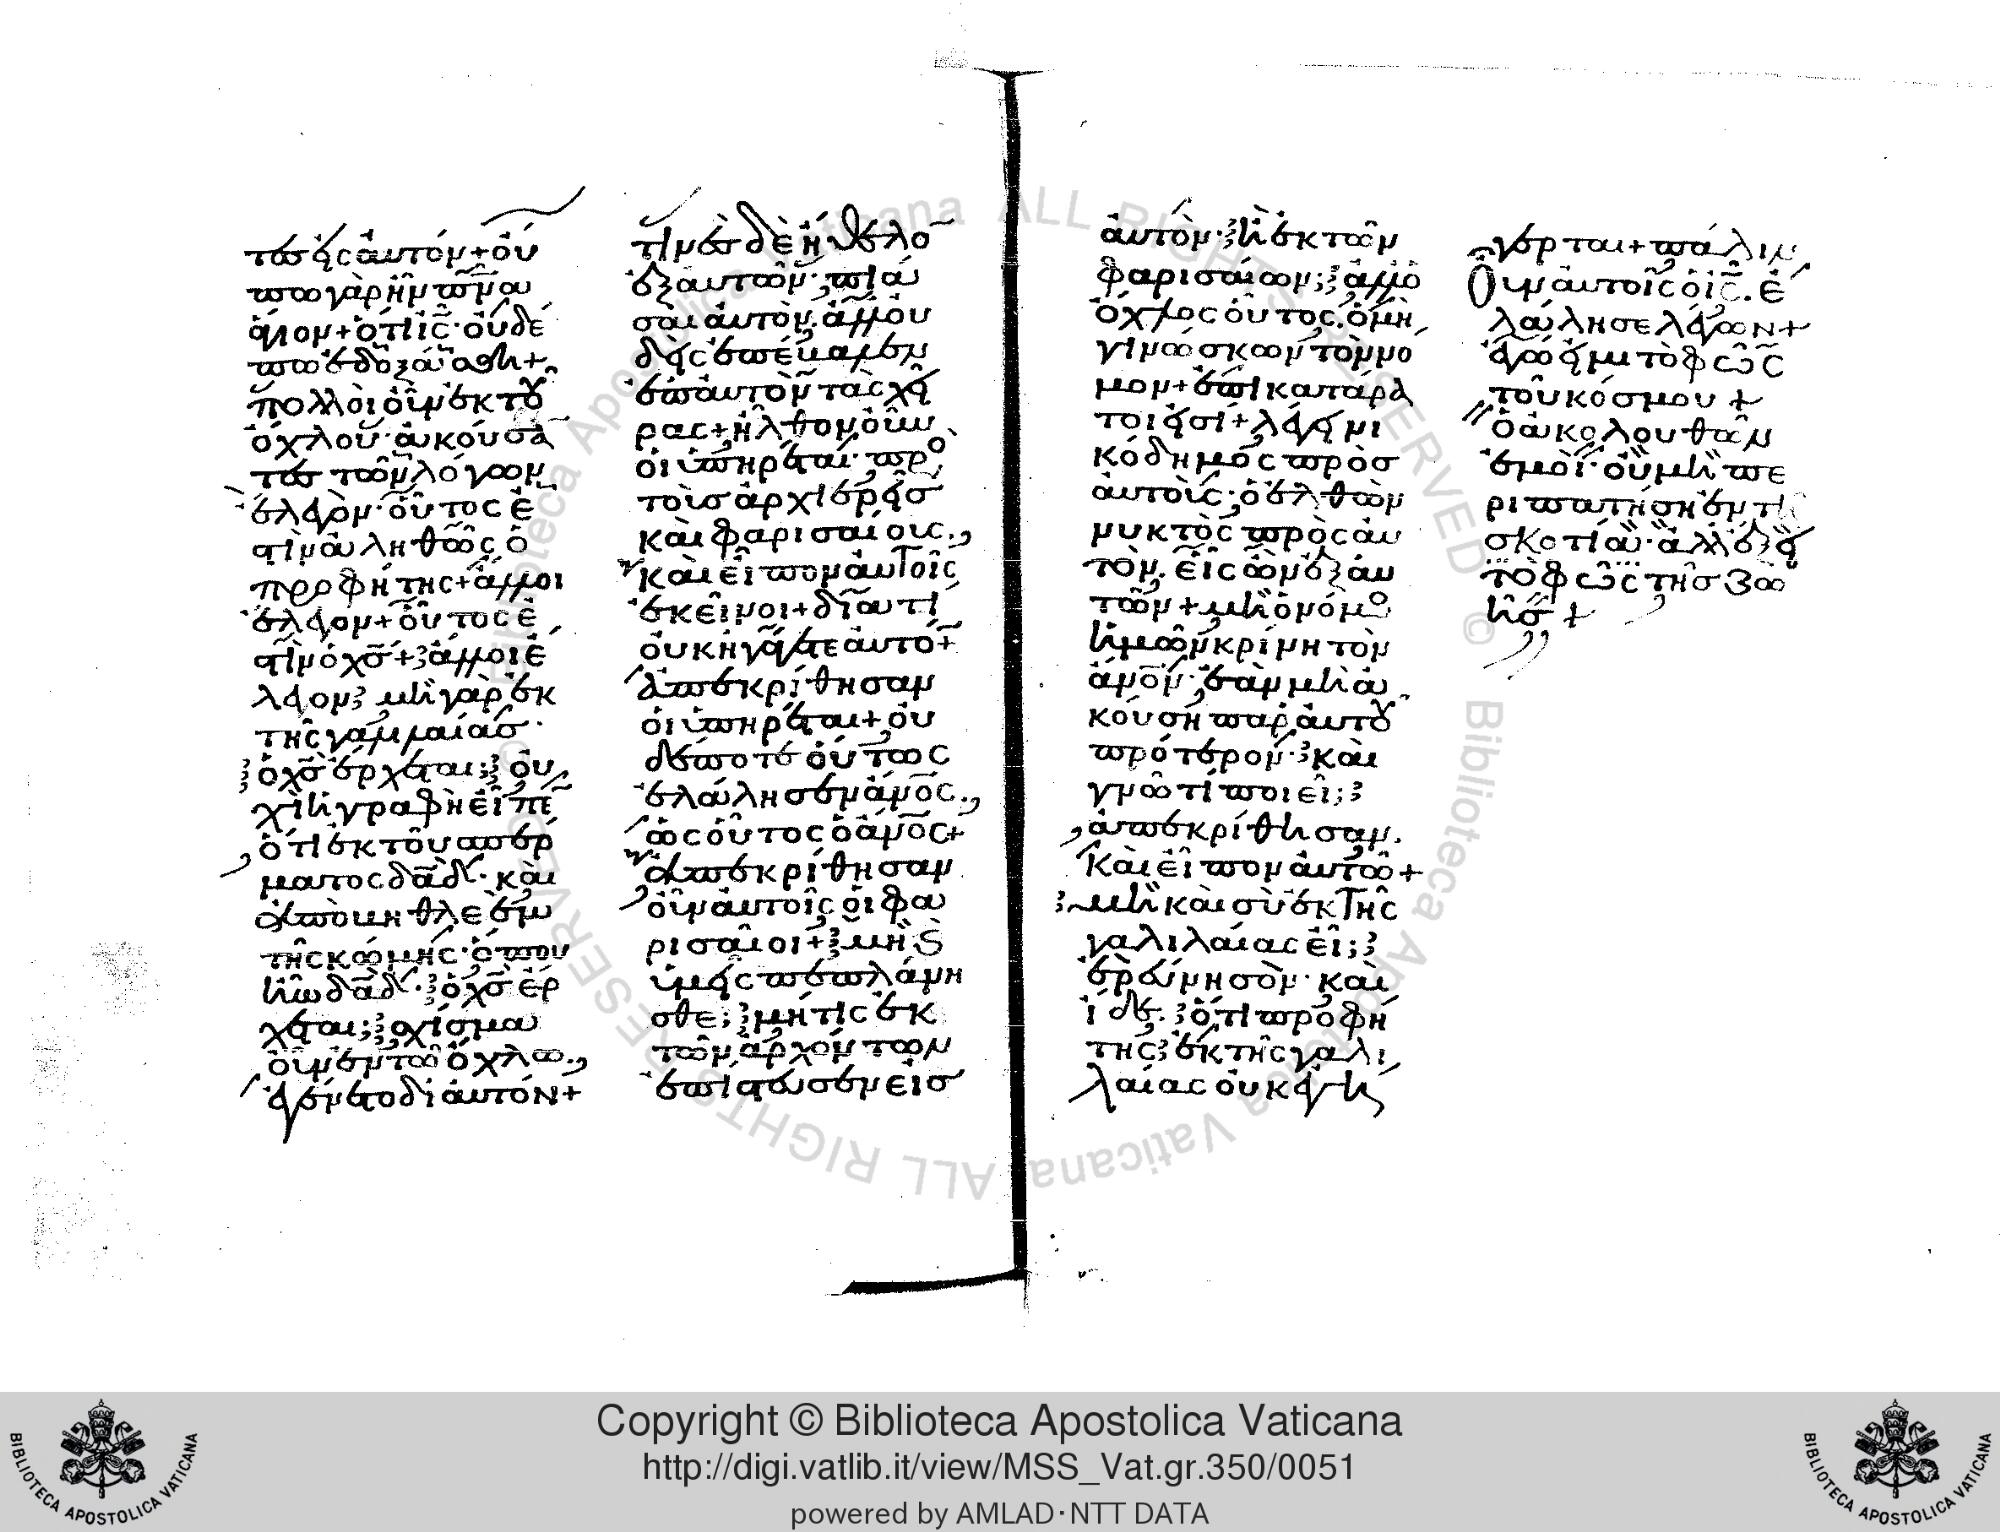 τες εἰς αὐτόν+ οὔ
πω γὰρ ἦν πνα
ἅγιον+ ὅτι ις· οὐδέ
πω ἐδοξάσθη+
πολλοὶ οὖν ἐκ τοῦ
ὄχλου· ἀκούσα
τες τῶν λόγων
ἔλεγον· οὗτος ἐ
στὶν ἀληθῶς ὁ
προφήτης+ ἄλλοι
ἔλεγον+ οὗτος ἐ
στὶν ὁ χς+ ἄλλοι ἔ
λεγον μὴ γὰρ ἐκ
τῆς γαλιλαίας
ὁ χς ἔρχεται; οὐ
χὶ ἡ γραφὴ εἶπε
ὅτι ἐκ τοῦ σπέρ
ματος δαδ· καὶ
ἀπὸ βηθλεὲμ
τῆς κώμης· ὅπου
ἦν δαδ· ὁ χς ἔρ
χεται; σχίσμα
οὖν ἐν τῶ ὄχλω.
ἐγένετο δι αὐτόν+
τινὲς δὲ ἤθελο
ἐξ αὐτῶν· πιά
σαι αὐτὸν. ἀλλ οὐ
δεὶς ἐπέβαλεν
ἐπ αὐτὸν τὰς χεῖ
ρας+ ἦλθον οὖν
οἱ ὑπηρέται· πρὸ
τοὺς ἀρχιερεῖς
καὶ φαρισαίους.
καὶ εἶπον αὐτοῖς
ἐκεῖνοι+ διατί
οὐκ ἠγάγετε αὐτό+
ἀπεκρίθησαν
οἱ ὑπηρέται+ οὐ
δέποτε οὕτως
ἐλάλησεν ἀνος.
ὡς οὗτος ὁ ἀνος+
ἀπεκρίθησαν
οὖν αὐτοῖς οἱ φα
ρισαῖοι+ μὴ κ
ὑμεῖς πεπλάνη
σθε; μήτις ἐκ
τῶν ἀρχόντων
ἐπίστευσεν εἰς
αὐτὸν· ἢ ἐκ τῶν
φαρισαίων; ἀλλ ὁ
ὄχλος οὗτος. ὁ μὴ
γινώσκων τὸν νό
μον+ ἐπικατάρα
τοι εἰσί+ λέγει νι
κόδημος πρὸς
αὐτοὺς· ὁ ἐλθὼν
νυκτὸς πρὸς αὐ
τὸν. εἷς ὢν ἐξ αὐ
τῶν+ μὴ ὁ νόμο
ἡμῶν κρίνει τὸν
ἄνον· ἐὰν μὴ ἀ
κούση παρ αὐτοῦ
πρότερον· καὶ
γνῶ τί ποιεῖ;
ἀπεκρίθησαν.
καὶ εἶπον αὐτῶ+
μὴ καὶ σὺ ἐκ τῆς
γαλιλαίας εἶ;
ἐραύνησον· καὶ
ἴδε. ὅτι προφή
της ἐκ τῆς γαλι
λαίας οὐκ ἐγή
γερται+ πάλιν
Οὖν αὐτοῖς ὁ ις. ἐ
λάλησε λέγων+
ἐγώ εἰμι τὸ φῶς
τοῦ κόσμου+
ὁ ἀκολουθῶν
ἐμοὶ· οὐ μὴ πε
ριπατήση ἐν τῆ
σκοτία· ἀλλ ἕξει
τὸ φῶς τῆς ζω
ῆς+
Copyright © Biblioteca Apostolica Vaticana
http://digi.vatlib.it/view/MSS_Vat.gr.350/0051
powered by AMLAD·NTT DATA
BIBLIOTECA APOSTOLICA VATICANA
BIBLIOTECA APOSTOLICA VATICANA